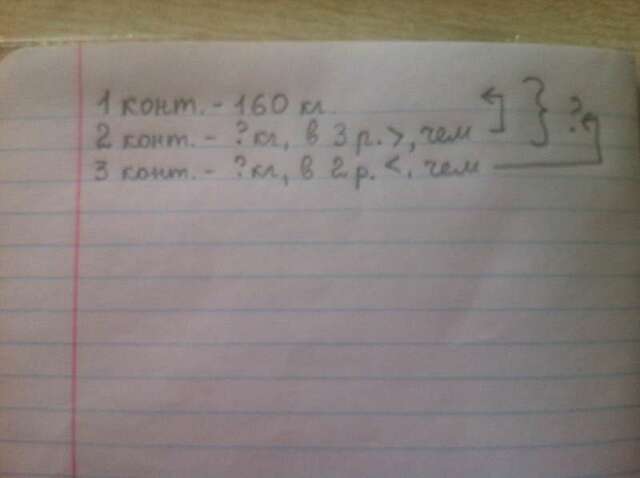 1 конт. - 160 кг
2 конт. - ? кг, в 3 р. >, чем } ?
3 конт. - ? кг, в 2 р. <, чем